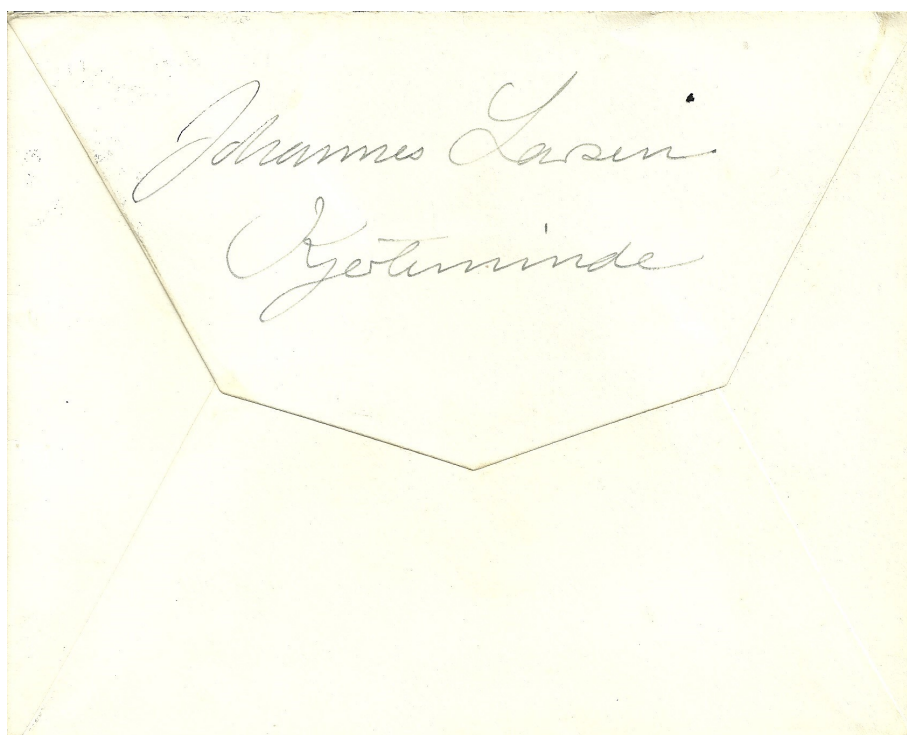 Johannes Larsen.
Kjerteminde